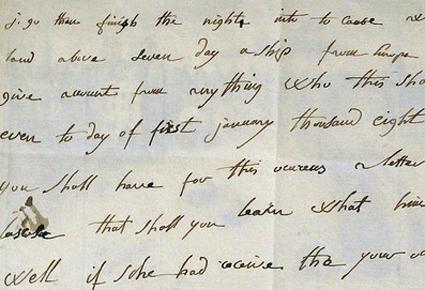 j: go than finish the night into to
land above seven day a ship from Europe
give account from anything who this sha
even to day of first january thousand eight
you shall have for this a letter
that shall you learn what
well if she had receive the your